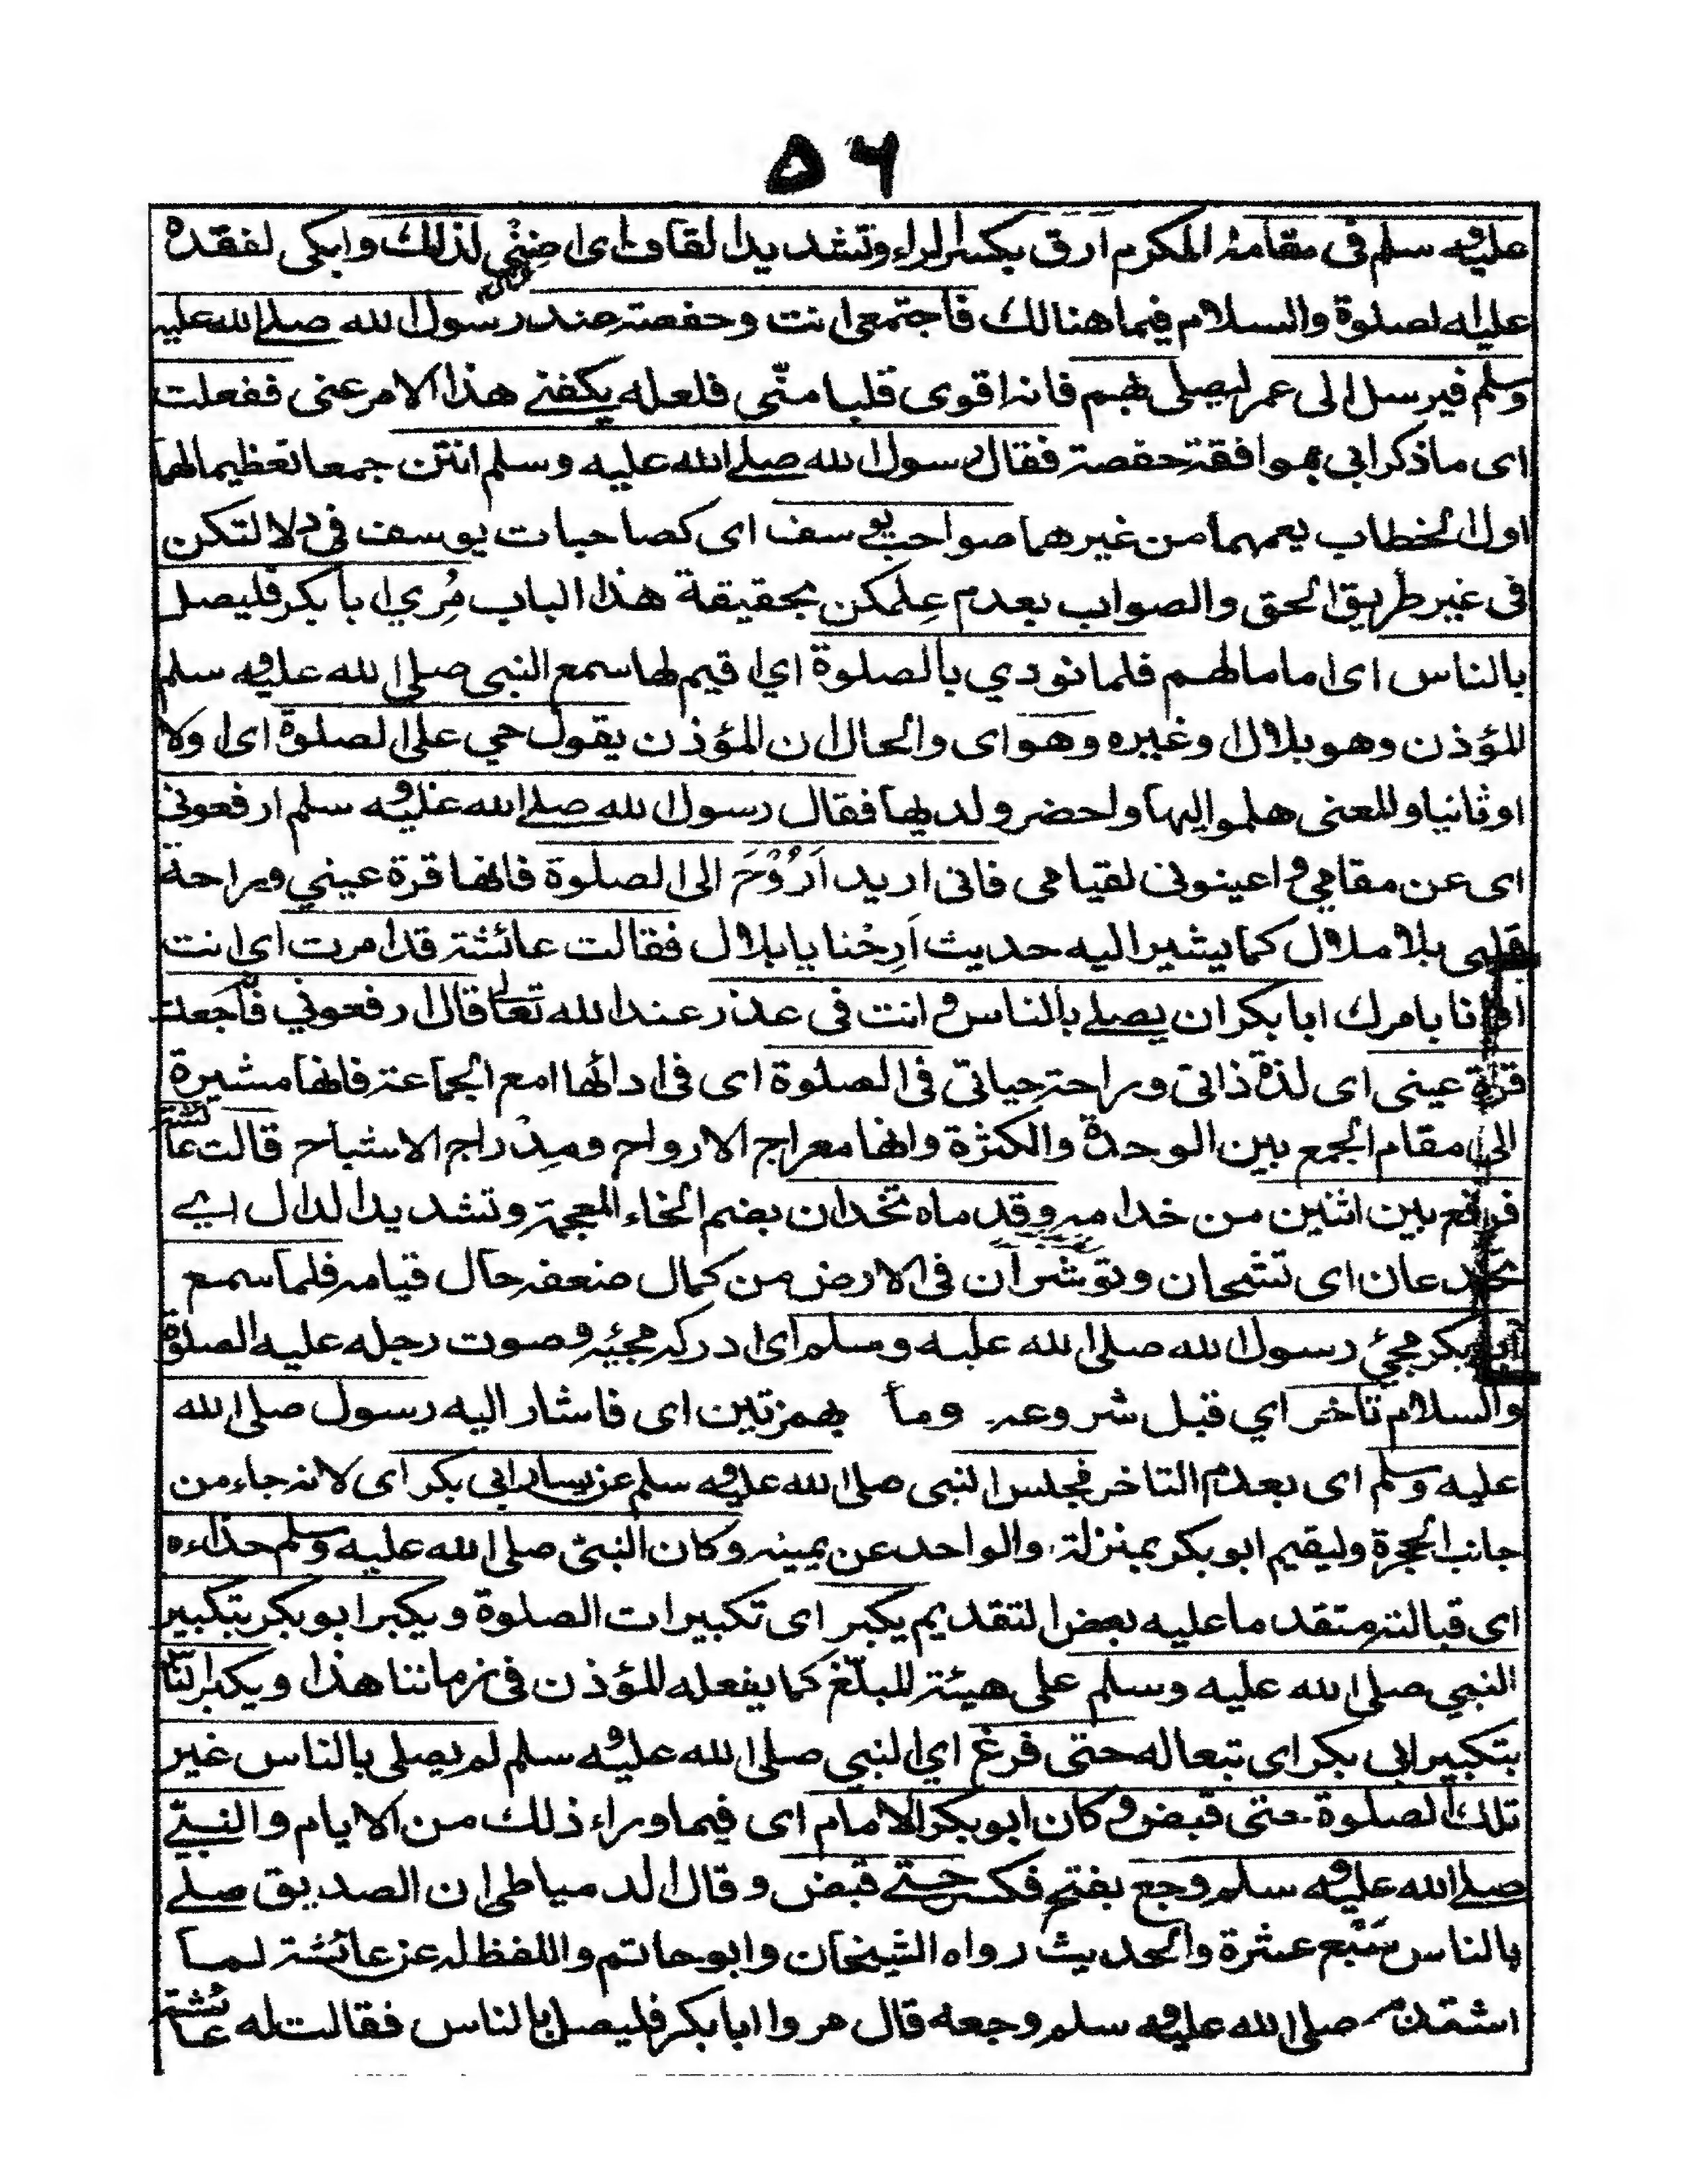 ٥٦
عليه وسلم فى مقامه المكرم ارق بكسر الراء وتشديد القاف اى لذلك وابكى لفقده
عليه الصلوة والسلام فيما هنالك فاجتمعى انت وحفصة عند رسول الله صلے الله عليه
وسلم فيرسل الى عمر ليصلى بهم فانه اقوى قلبا منّى فلعله يكفنے هذا الامر عنى ففعلت
اى ما ذكر ابى بموافقة حفصة فقال رسول الله صلے الله عليه وسلم انتن جمعا تعظيما لهما
اول الخطاب يعمهما من غيرهما صواحب يوسف اى كصاحبات يوسف فى دلالتكن
فى غير طريق الحق والصواب بعدم عِلمكن بحقيقة هذا الباب مُرِي ابا بكر فليصل
بالناس اى اماما لهم فلما نودي بالصلوة اي اقيم لها سمع النبى صلى الله عليه وسلم
المؤذن وهو بلال او غيره وهو اى والحال ان المؤذن يقول حي على الصلوة اى اولا
او ثانيا والمعنى هلموا اليها واحضروا لديها فقال رسول الله صلے الله عليه وسلم ارفعونى
اى عن مقامي واعينونى لقيامى فانى اريد اَرُوْحَ الى الصلوة فانها قرة عيني وراحة
قلبى بلا ملال كما يشير اليه حديث اَرِحْنا يا بلال فقالت عائشة قد امرت اى انت
انا بامرك ابا بكر ان يصلے بالناس وانت فى عذر عند الله تعالى قال ارفعوني فَاُجعلت
قرة عينى اى لذة ذاتى وراحة حياتى فى الصلوة اى فى ادائها مع الجماعة فانها مشيرة
الى مقام الجمع بين الوحدة والكثرة وانها معراج الارواح ومِدْراج الاشباح قالت عائشة
فرفع بين اثنين من خدامه وقدماه تخدان بضم الخاء المعجمة وتشديد الدال اے
تخدعان اى تشحان وتوشران فى الارض من كمال ضعفه حال قيامه فلما سمع
ابو بكر مجئ رسول الله صلى الله عليه وسلم اى ادركه مجيئه وصوت رجله عليه الصلوة
والسلام تاخر اي قبل شروعه وما بهمزتين اى فاشار اليه رسول صلى الله
عليه وسلم اى بعدم التاخر فجلس النبى صلى الله عليه وسلم عن يسار ابى بكر اى لانه جاء من
جانب الحجرة وليقيم ابو بكر بمنزلة والواحد عن يمينه وكان النبىّ صلى الله عليه وسلم حذاءه
اى قبالته متقدما عليه بعض التقديم يكبر اى تكبيرات الصلوة ويكبر ابو بكر بتكبير
النبي صلى الله عليه وسلم على هيئة المبلّغ كما يفعله المؤذن فى زماننا هذا ويكبر الناس
بتكبير ابى بكر اى تبعا له حتى فرغ اي النبي صلى الله عليه وسلم لم يصلى بالناس غير
تلك الصلوة حتى قبض وكان ابو بكر الامام اى فيما وراء ذلك من الايام والنبے
صلے الله عليه وسلم وجع بفتح فكسر حتے قبض وقال الدمياطى ان الصديق صلے
بالناس سَبْع عشرة والحديث رواه الشيخان وابو حاتم واللفظ له عن عائشة لما
اشتد صلى الله عليه وسلم وجعه قال مروا ابا بكر فليصل بالناس فقالت له عائشة